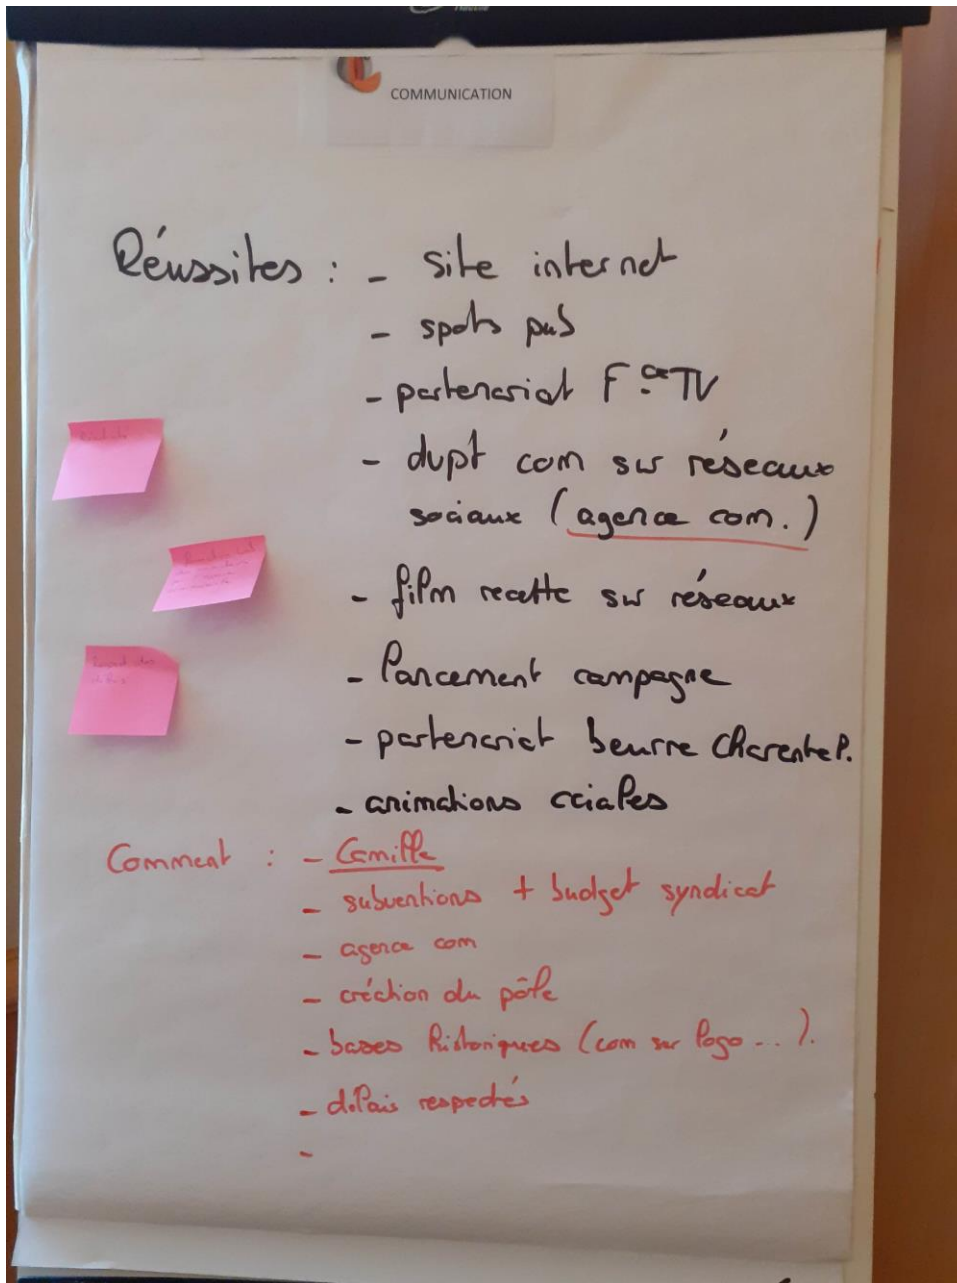 COMMUNICATION
Réussites : - site internet
- spots pub
- partenariat F ce TV
- dvpt com sur réseaux
sociaux (agence com.)
- film recette sur réseaux
- lancement campagne
- partenariat beurre Charente P.
- animations cciales
Respect des
délais
Comment : - Camille
- subventions + budget syndicat
- agence com
- création du pôle
- bases historiques (com sur logo ... ).
- délais respectés
-